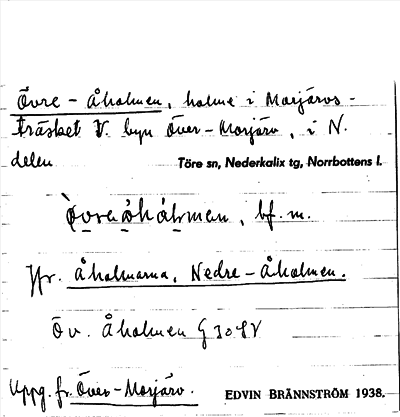 Övre-Åholmen, holme i Morjärvs-
träsket V. byn Över-Morjärv, i N.
delen
Töre sn, Nederkalix tg, Norrbottens l.
bf. m.
Jfr. Åholmarna, Nedre-Åholmen.
Öv. Åholmen G 30 SV
Uppg. fr. Över-Morjärv.
EDVIN BRÄNNSTRÖM 1938.